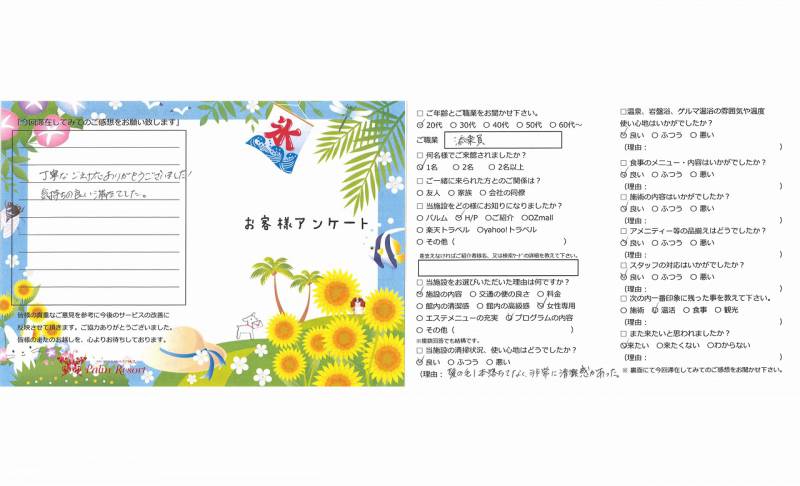 「今回滞在してみてのご感想をお願い致します」
丁寧なご
ありがとうございました!
気持ちの良い滞在でした。
皆様の貴重なご意見を参考に今後のサービスの改善に
反映させて頂きます。ご協力ありがとうございました。
皆様の またのお越しを、心よりお待ちしております。
Palm Resort
氷
お客様アンケート
□ ご年齢とご職業をお聞かせ下さい。
○ 20代 ○ 30代 ○ 40代 ○ 50代 ○ 60代~
ご職業
□ 何名様でご来館されましたか?
○ 1名 ○ 2名 ○ 2名以上
□ ご一緒に来られた方とのご関係は?
○ 友人 ○ 家族 ○ 会社の同僚
□ 当施設をどの様にお知りになりましたか?
○ パルム ○ H/P ○ご紹介 ○OZmall
○ 楽天トラベル ○yahoo!トラベル
○ その他( )
差支えなければご紹介者様名、又は検索ワードの詳細を教えて下さい。
□ 当施設をお選びいただいた理由は何ですか?
○ 施設の内容 ○ 交通の便の良さ ○ 料金
○ 館内の清潔感 ○ 館内の高級感 ○ 女性専用
○ エステメニューの充実 ○ プログラムの内容
○ その他( )
※複数回答でも結構です。
□ 当施設の清掃状況、使い心地はどうでしたか?
○ 良い ○ ふつう ○ 悪い
(理由: 髪の毛1本落ちてなく、非常に清潔感があった。
□温泉、岩盤浴、ゲルマ温浴の雰囲気や温度
使い心地はいかがでしたか?
○ 良い ○ ふつう ○ 悪い
(理由: )
□ 食事のメニュー・内容はいかがでしたか?
○ 良い ○ ふつう ○ 悪い
(理由: )
□ 施術の内容はいかがでしたか?
○ 良い ○ ふつう ○ 悪い
□ アメニティー等の品揃えはどうでしたか?
○ 良い ○ ふつう ○ 悪い
□ スタッフの対応はいかがでしたか?
○ 良い ○ ふつう ○ 悪い
□ 次の内一番印象に残った事を教えて下さい。
○ 施術 ○ 温活 ○ 食事 ○ 観光
□ また来たいと思われましたか?
○来たい ○来たくない ○わからない
(理由: )
※ 裏面にて今回滞在してみてのご感想をお聞かせ下さい。